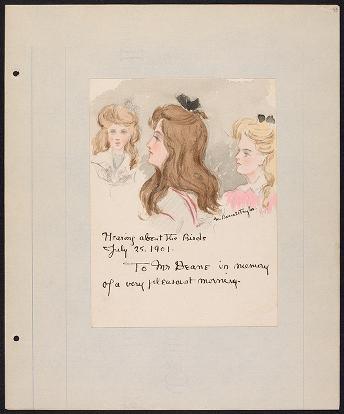 Hearing about the Birds
July 25. 1901.
To Mr Deane in memory
of a very pleasant morning.